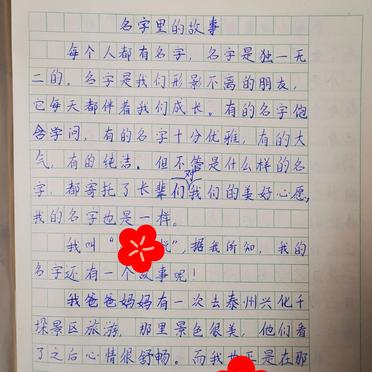 名字里的故事
每个人都有名字，名字是独一无
二的。名字是我们形影不离的朋友，
它每天都伴着我们成长。有的名字饱
含学问，有的名字十分优雅，有的大
气，有的纯洁。但不管是什么样的名
字，都寄托了长辈们对我们的美好心愿，
我的名字也是一样。
我叫“”，据我所知，我的
名字还有一个故事呢！
我爸爸妈妈有一次去泰州兴化千
垛景区旅游，那里景色很美，他们看
了之后心情很舒畅。而我也正是在那